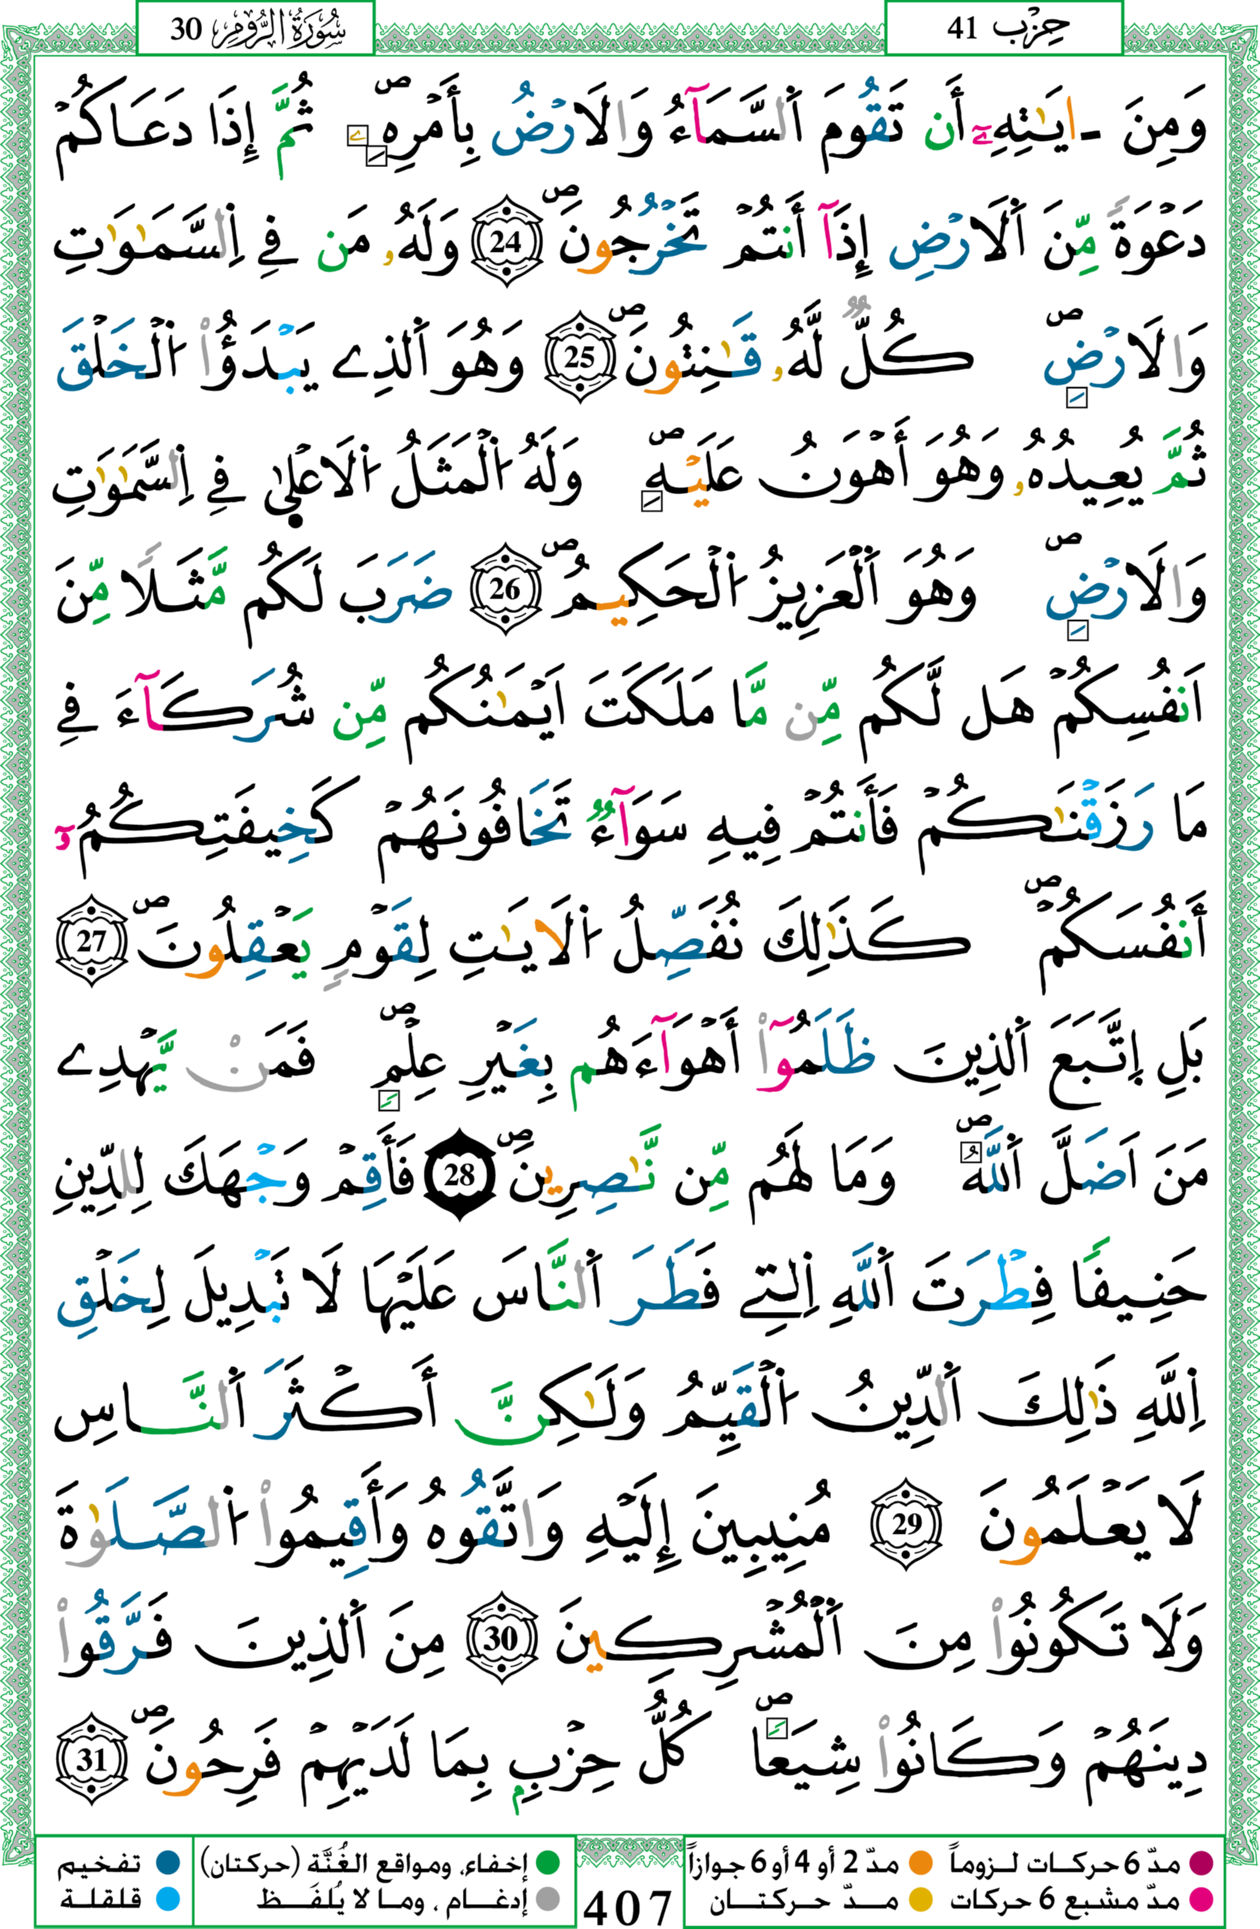 حِزْب 41
سُورَةُ الرُّومِ 30
وَمِنَ ـايَٰتِهِۦٓ أَن تَقُومَ اَ۬لسَّمَآءُ وَالَارْضُ بِأَمْرِهِۦۖ ثُمَّ إِذَا دَعَاكُمْ
دَعْوَةٗ مِّنَ اَ۬لَارْضِ إِذَآ أَنتُمْ تَخْرُجُونَۖ 24 وَلَهُۥ مَن فِے اِ۬لسَّمَٰوَٰتِ
وَالَارْضِۖ كُلّٞ لَّهُۥ قَٰنِتُونَۖ 25 وَهُوَ اَ۬لذِے يَبْدَؤُاْ اُ۬لْخَلْقَ
ثُمَّ يُعِيدُهُۥ وَهُوَ أَهْوَنُ عَلَيْهِۖ وَلَهُ اُ۬لْمَثَلُ اُ۬لَاعْل۪يٰ فِے اِ۬لسَّمَٰوَٰتِ
وَالَارْضِۖ وَهُوَ اَ۬لْعَزِيزُ اُ۬لْحَكِيمُۖ 26 ضَرَبَ لَكُم مَّثَلٗا مِّنَ
اَنفُسِكُمْ هَل لَّكُم مِّن مَّا مَلَكَتَ اَيْمَٰنُكُم مِّن شُرَكَآءَ فِے
مَا رَزَقْنَٰكُمْ فَأَنتُمْ فِيهِ سَوَآءٞ تَخَافُونَهُمْ كَخِيفَتِكُمُۥٓ
أَنفُسَكُمْۖ كَذَٰلِكَ نُفَصِّلُ اُ۬لَايَٰتِ لِقَوْمٖ يَعْقِلُونَۖ 27
بَلِ اِ۪تَّبَعَ اَ۬لذِينَ ظَلَمُوٓاْ أَهْوَآءَهُم بِغَيْرِ عِلْمٖۖ فَمَنْ يَّهْدِے
مَنَ اَضَلَّ اَ۬للَّهُۖ وَمَا لَهُم مِّن نَّٰصِرِينَۖ 28 فَأَقِمْ وَجْهَكَ لِلدِّينِ
حَنِيفاٗ فِطْرَتَ اَ۬للَّهِ اِ۬لتِے فَطَرَ اَ۬لنَّاسَ عَلَيْهَا لَا تَبْدِيلَ لِخَلْقِ
اِ۬للَّهِ ذَٰلِكَ اَ۬لدِّينُ اُ۬لْقَيِّمُ وَلَٰكِنَّ أَكْثَرَ اَ۬لنَّاسِ
لَا يَعْلَمُونَ 29 مُنِيبِينَ إِلَيْهِ وَاتَّقُوهُ وَأَقِيمُواْ اُ۬لصَّلَوٰةَ
وَلَا تَكُونُواْ مِنَ اَ۬لْمُشْرِكِينَ 30 مِنَ اَ۬لذِينَ فَرَّقُواْ
دِينَهُمْ وَكَانُواْ شِيَعاٗۖ كُلُّ حِزْبِۢ بِمَا لَدَيْهِمْ فَرِحُونَۖ 31
مدّ 6 حركات لزوماً
مدّ 2 أو 4 أو 6 جوازاً
إخفاء، ومواقع الغُنَّة (حركتان)
تفخيم
مدّ مشبع 6 حركات
مدّ حركتان
إدغام ، وما لا يُلفَظ
قلقلة
407